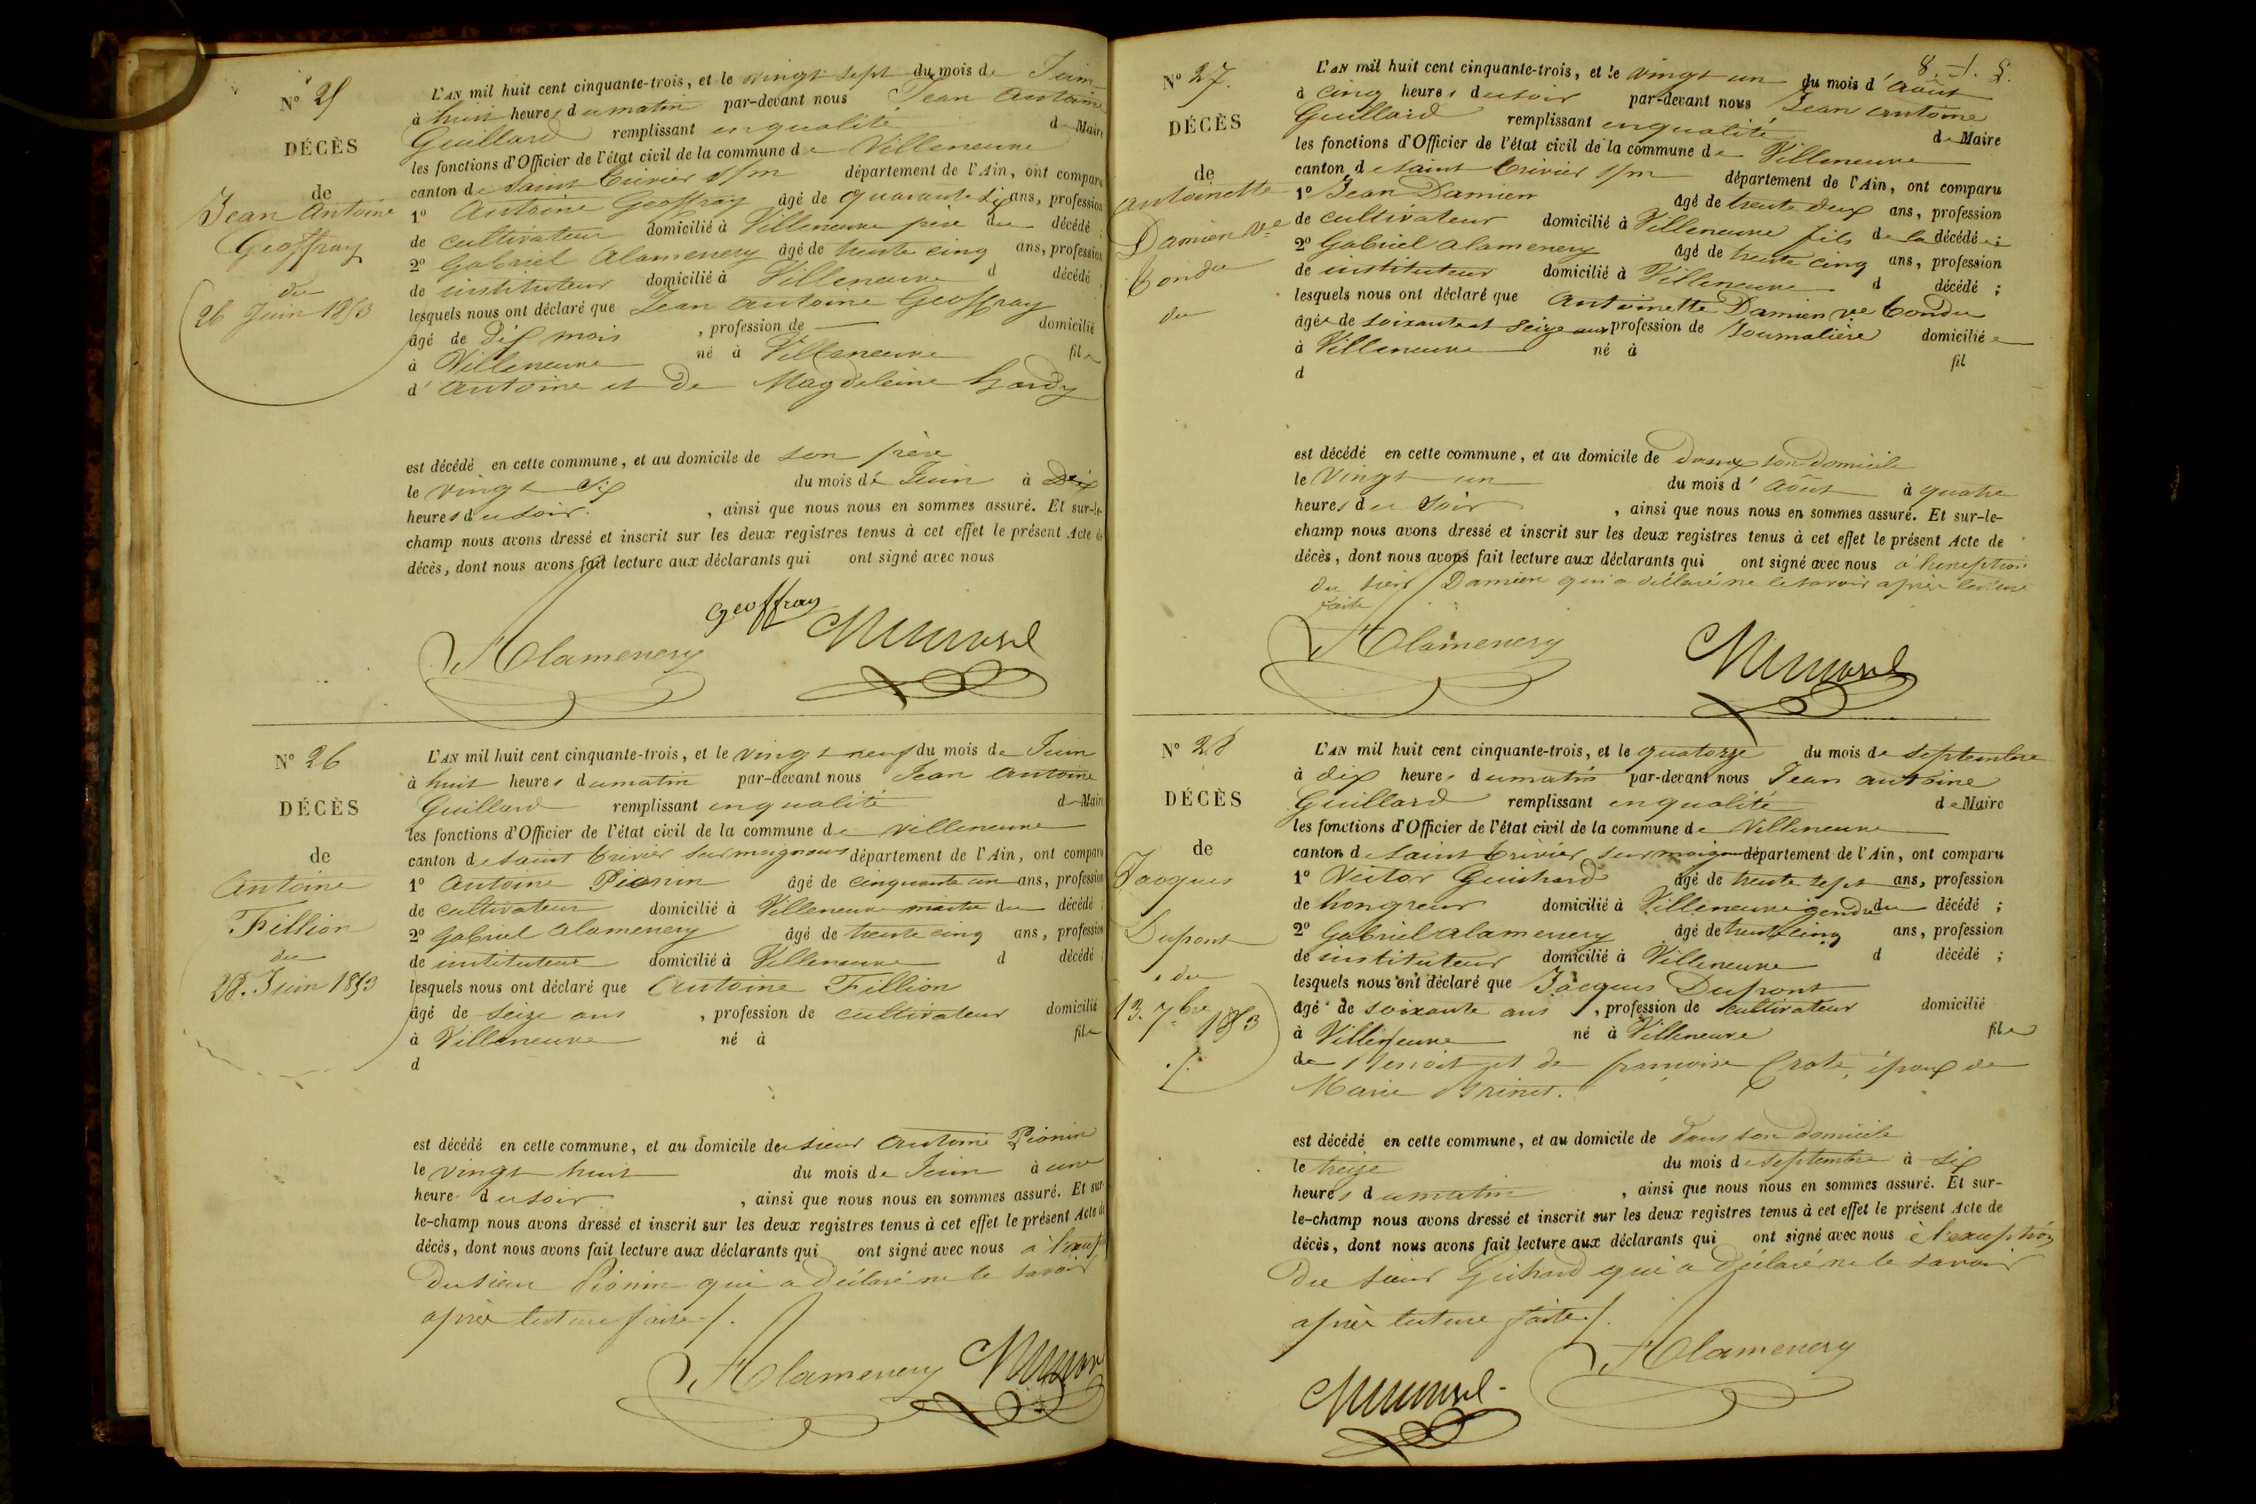 N° 25
DÉCÈS
de
Jean Antoine
Geoffray
du
26 Juin 1853
L'AN mil huit cent cinquante-trois, et le vingt sept du mois de Juin
à huit heures du matin par-devant nous Jean Antoine
Guillard remplissant en qualité de Maire
les fonctions d'Officier de l'état civil de la commune de Villeneuve
canton de Saint Trivier s/m département de l'Ain, ont comparu
1° Antoine Geoffray âgé de quarante six ans, profession
de cultivateur domicilié à Villeneuve père du décédé ;
2° Gabriel Alamenery âgé de trente cinq ans, profession
de instituteur domicilié à Villeneuve d décédé ;
lesquels nous ont déclaré que Jean Antoine Geoffray
âgé de Dix mois , profession de — domicilié
à Villeneuve né à Villeneuve fils
d' Antoine et de Magdeleine
est décédé en cette commune, et au domicile de son père
le vingt six du mois de Juin à Dix
heures du soir. , ainsi que nous nous en sommes assuré. Et sur-le-
champ nous avons dressé et inscrit sur les deux registres tenus à cet effet le présent Acte de
décès, dont nous avons fait lecture aux déclarants qui ont signé avec nous
geoffray
Alamenery
N° 26
DÉCÈS
de
Antoine
Fillion
du
28. Juin 1853
L'AN mil huit cent cinquante-trois, et le vingt neuf du mois de Juin
à huit heures du matin par-devant nous Jean Antoine
Guillard remplissant en qualité de Maire
les fonctions d'Officier de l'état civil de la commune de Villeneuve
canton de Saint Trivier sur moignans département de l'Ain, ont comparu
1° Antoine Pionin âgé de cinquante un ans, profession
de cultivateur domicilié à Villeneuve maitre du décédé ;
2° Gabriel Alamenery âgé de trente cinq ans, profession
de instituteur domicilié à Villeneuve d décédé ;
lesquels nous ont déclaré que Antoine Fillion
âgé de seize ans , profession de cultivateur domicilié
à Villeneuve né à fils
d
est décédé en cette commune, et au domicile de sieur Antoine Pionin
le vingt huit du mois de Juin à une
heure du soir , ainsi que nous nous en sommes assuré. Et sur-
le-champ nous avons dressé et inscrit sur les deux registres tenus à cet effet le présent Acte de
décès, dont nous avons fait lecture aux déclarants qui ont signé avec nous à l'except
du sieur Pionin qui a déclaré ne le savoir
après lecture faite /.
Alamenery
N° 27.
DÉCÈS
de
Antoinette
Damien Ve
Condu
du
L'AN mil huit cent cinquante-trois, et le vingt un du mois d' Août
à cinq heures du soir par-devant nous Jean Antoine
Guillard remplissant en qualité de Maire
les fonctions d'Officier de l'état civil de la commune de Villeneuve
canton de Saint Trivier s/m département de l'Ain, ont comparu
1° Jean Damien âgé de trente deux ans, profession
de cultivateur domicilié à Villeneuve fils de la décédée ;
2° Gabriel Alamenery âgé de trente cinq ans, profession
de instituteur domicilié à Villeneuve d décédé ;
lesquels nous ont déclaré que Antoinette Damien Ve Condu
âgée de soixante et seize ans profession de Journalière domiciliée
à Villeneuve né à fil
d
est décédé en cette commune, et au domicile de dans son domicile
le Vingt un du mois d' Août à quatre
heures du Soir , ainsi que nous nous en sommes assuré. Et sur-le-
champ nous avons dressé et inscrit sur les deux registres tenus à cet effet le présent Acte de
décès, dont nous avons fait lecture aux déclarants qui ont signé avec nous à l'exception
du sieur Damien qui a déclaré ne le savoir après lecture
faite
Alamenery
N° 28
DÉCÈS
de
Jacques
Dupont
du
13. 7bre 1853
./.
L'AN mil huit cent cinquante-trois, et le quatorze du mois de septembre
à dix heures du matin par-devant nous Jean Antoine
Guillard remplissant en qualité de Maire
les fonctions d'Officier de l'état civil de la commune de Villeneuve
canton de Saint Trivier sur moignans département de l'Ain, ont comparu
1° Victor Guichard âgé de trente sept ans, profession
de hongreur domicilié à Villeneuve gendre du décédé ;
2° Gabriel Alamenery âgé de trente cinq ans, profession
de instituteur domicilié à Villeneuve d décédé ;
lesquels nous ont déclaré que Jacques Dupont
âgé de soixante ans , profession de cultivateur domicilié
à Villeneuve né à Villeneuve fils
de Benoit et de françoise Crote, époux de
Marie Brinet.
est décédé en cette commune, et au domicile de dans son domicile
le treize du mois de septembre à six
heures du matin , ainsi que nous nous en sommes assuré. Et sur-
le-champ nous avons dressé et inscrit sur les deux registres tenus à cet effet le présent Acte de
décès, dont nous avons fait lecture aux déclarants qui ont signé avec nous à l'exception
du sieur Guichard qui a déclaré ne le savoir
après lecture faite /.
Alamenery